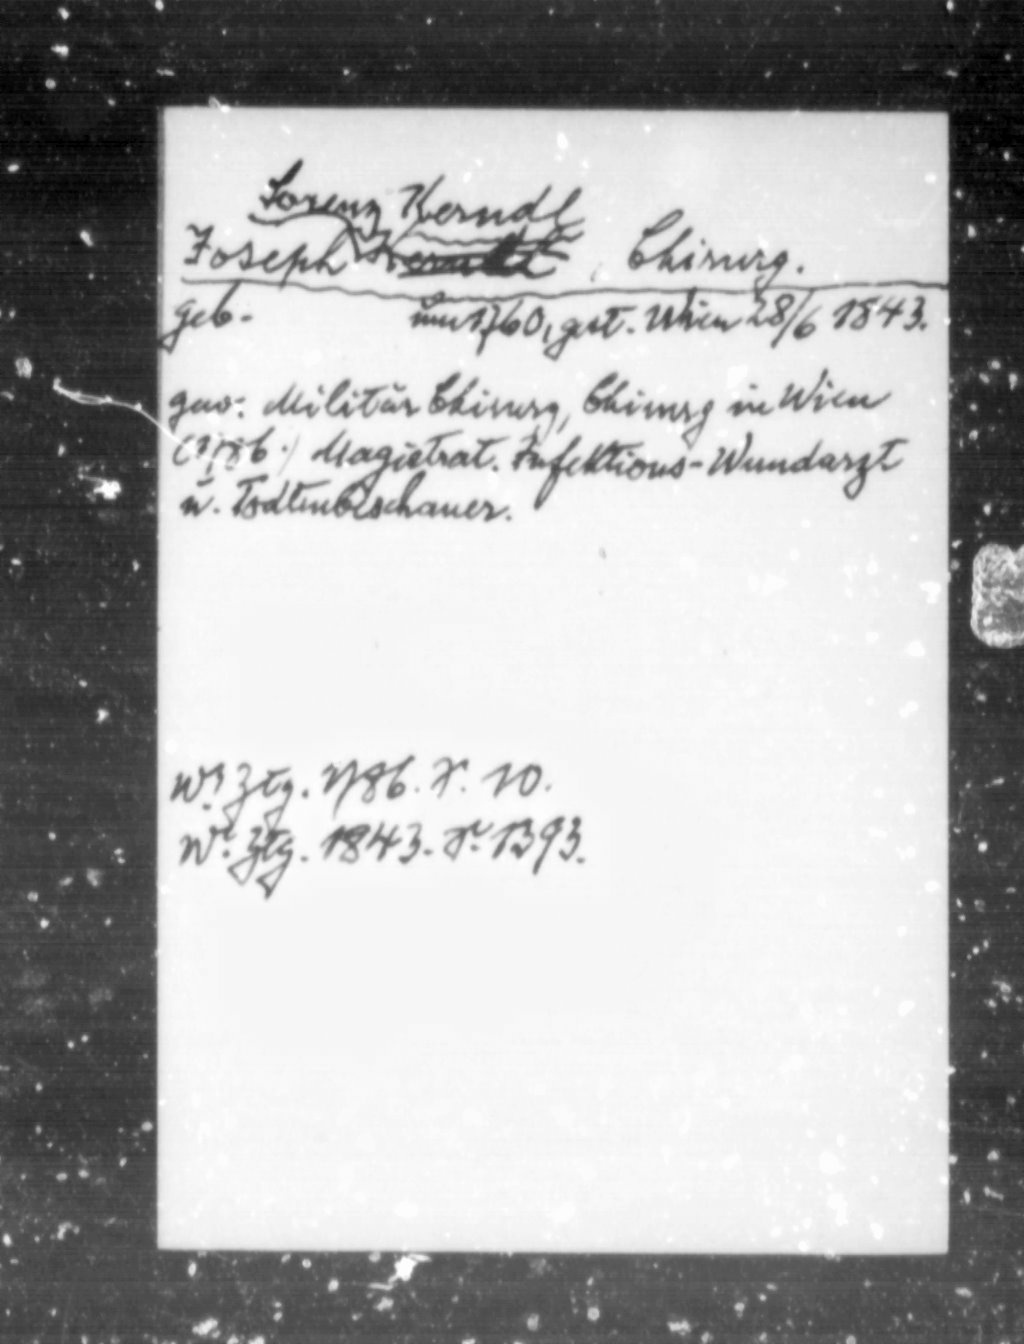 Lorenz Kerndl
Joseph , Chirurg.
geb. um 1760, gest. Wien 28/6 1843.
gew. Militär Chirurg, Chirurg in Wien
(1786.) Magistrat. Infektions-Wundarzt
u. Todtenbeschauer.
Wr Ztg. 1786. S. 10.
Wr. Ztg. 1843. S. 1393.